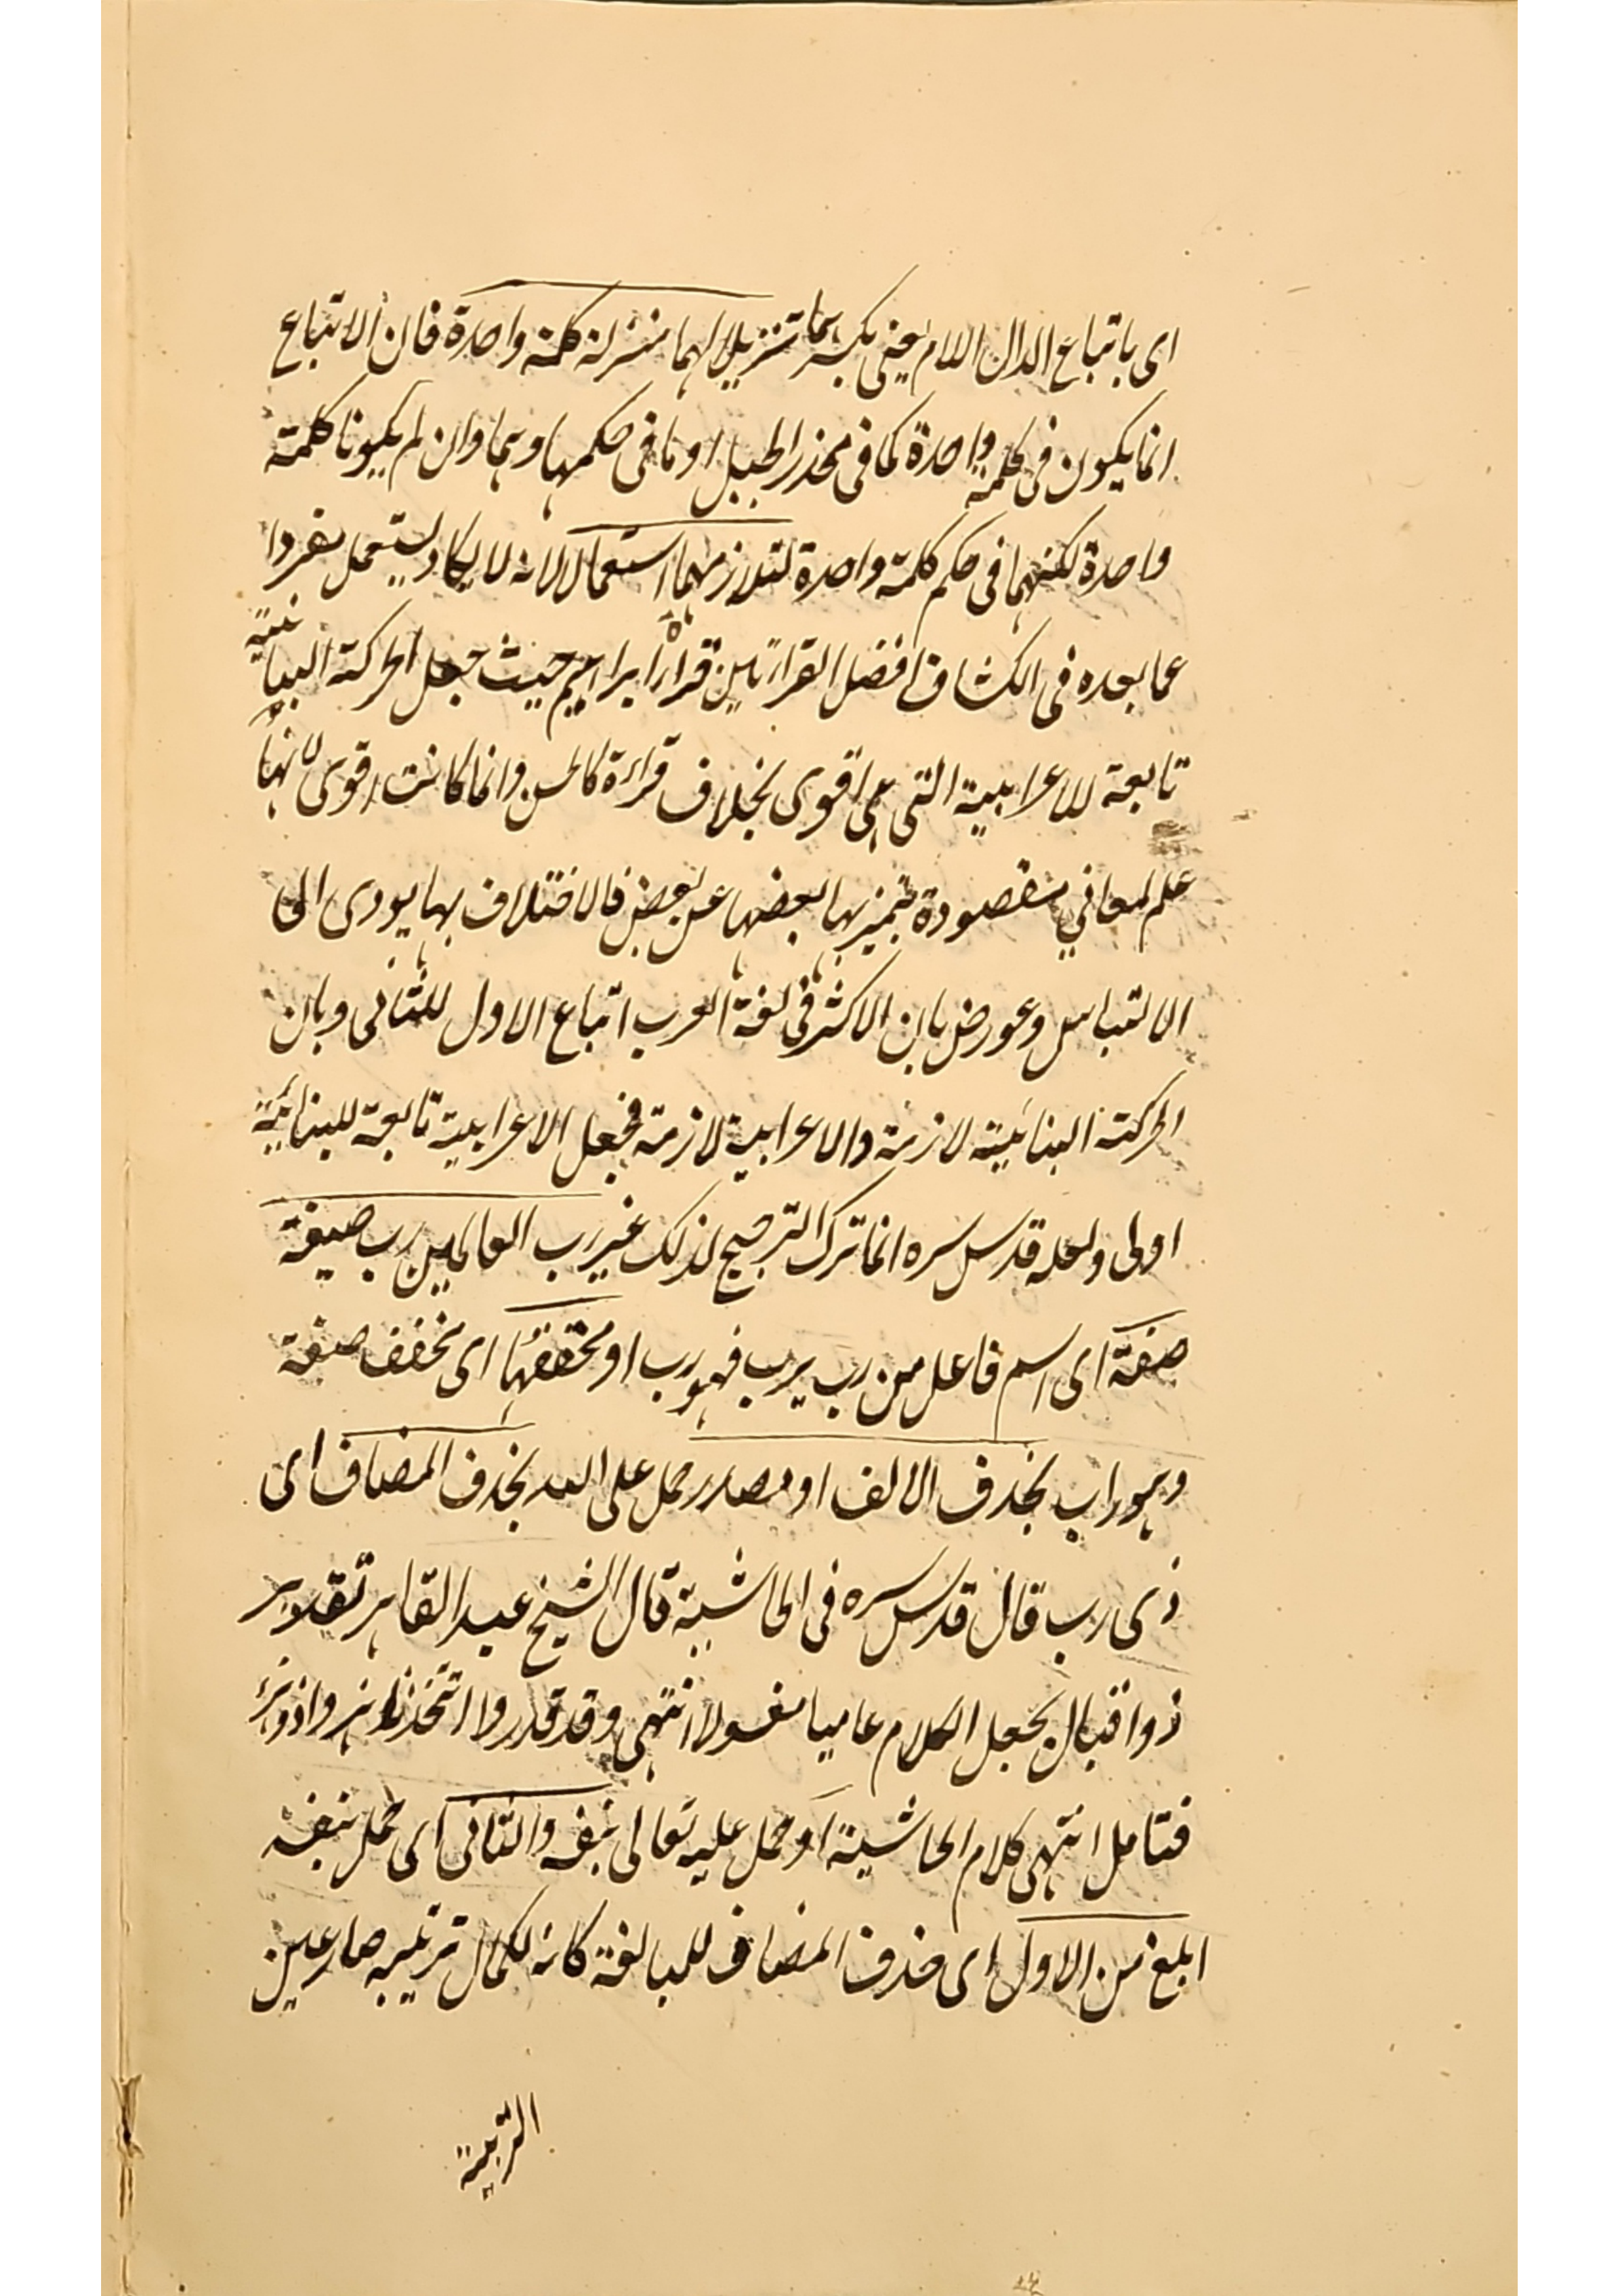 اى باتباع الدال اللام يعنى بكسرهما تنزيلا لهما منزلة كلمة واحدة فان الاتباع
انما يكون فى كلمة واحدة كما فى منحدر الجبل او ما فى حكمها وهما وان لم يكونا كلمة
واحدة لكنهما فى حكم كلمة واحدة لتلازمهما استعمالا لانه لا يكاد يستعمل مفردا
عما بعده فى الكشاف افضل القراءتين قراءة ابراهيم حيث جعل الحركة البنائية
تابعة للاعرابية التى هى اقوى بخلاف قراءة الحسن وانما كانت اقوى لانها
علم لمعاني مقصودة يتميز بها بعضها عن بعض فالاختلاف بها يودى الى
الالتباس وعورض بان الاكثر فى لغة العرب اتباع الاول للثانى وبان
الحركة البنائية لازمة والاعرابية لازمة فجعل الاعرابية تابعة للبنائية
اولى ولعله قدس سره انما ترك الترجيح لذلك غير رب العالمين رب صيغة
صفة اى اسم فاعل من رب يرب فهو رب او مخففها اى مخفف صفة
وهو راب بحذف الالف او مصدر حمل على الله بحذف المضاف اى
ذى رب قال قدس سره فى الحاشية قال الشيخ عبد القاهر تقدير
ذو اقبال يجعل الكلام عاميا مغسولا انتهى وقد قدروا اتتخذنا هزوا ذوى هزء
فتامل انتهى كلام الحاشية او حمل عليه تعالى بنفسه والثانى اى حمل بنفسه
ابلغ من الاول اى حذف المضاف للمبالغة كانه لكمال تربيته صار عين
التربية